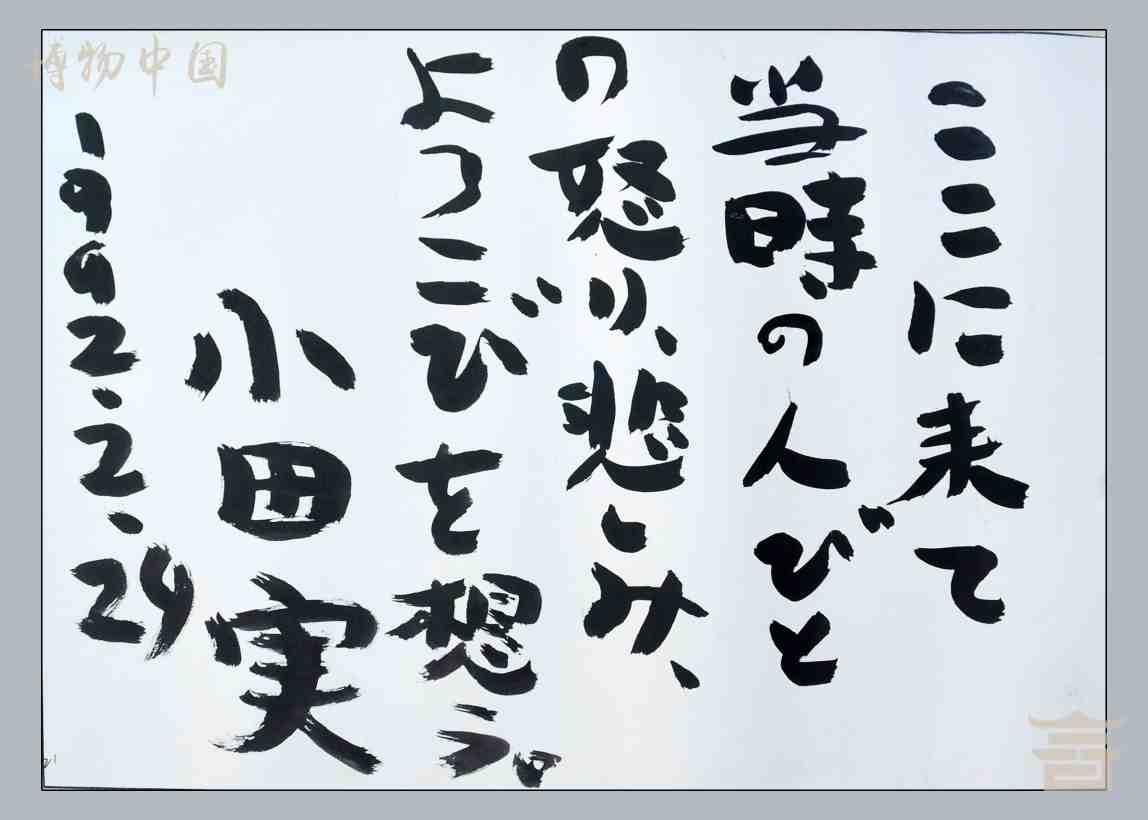 ここに来て
当時の人びと
の怒り、悲しみ、
よろこびを想う。
小田実
1992.2.24
博物中国